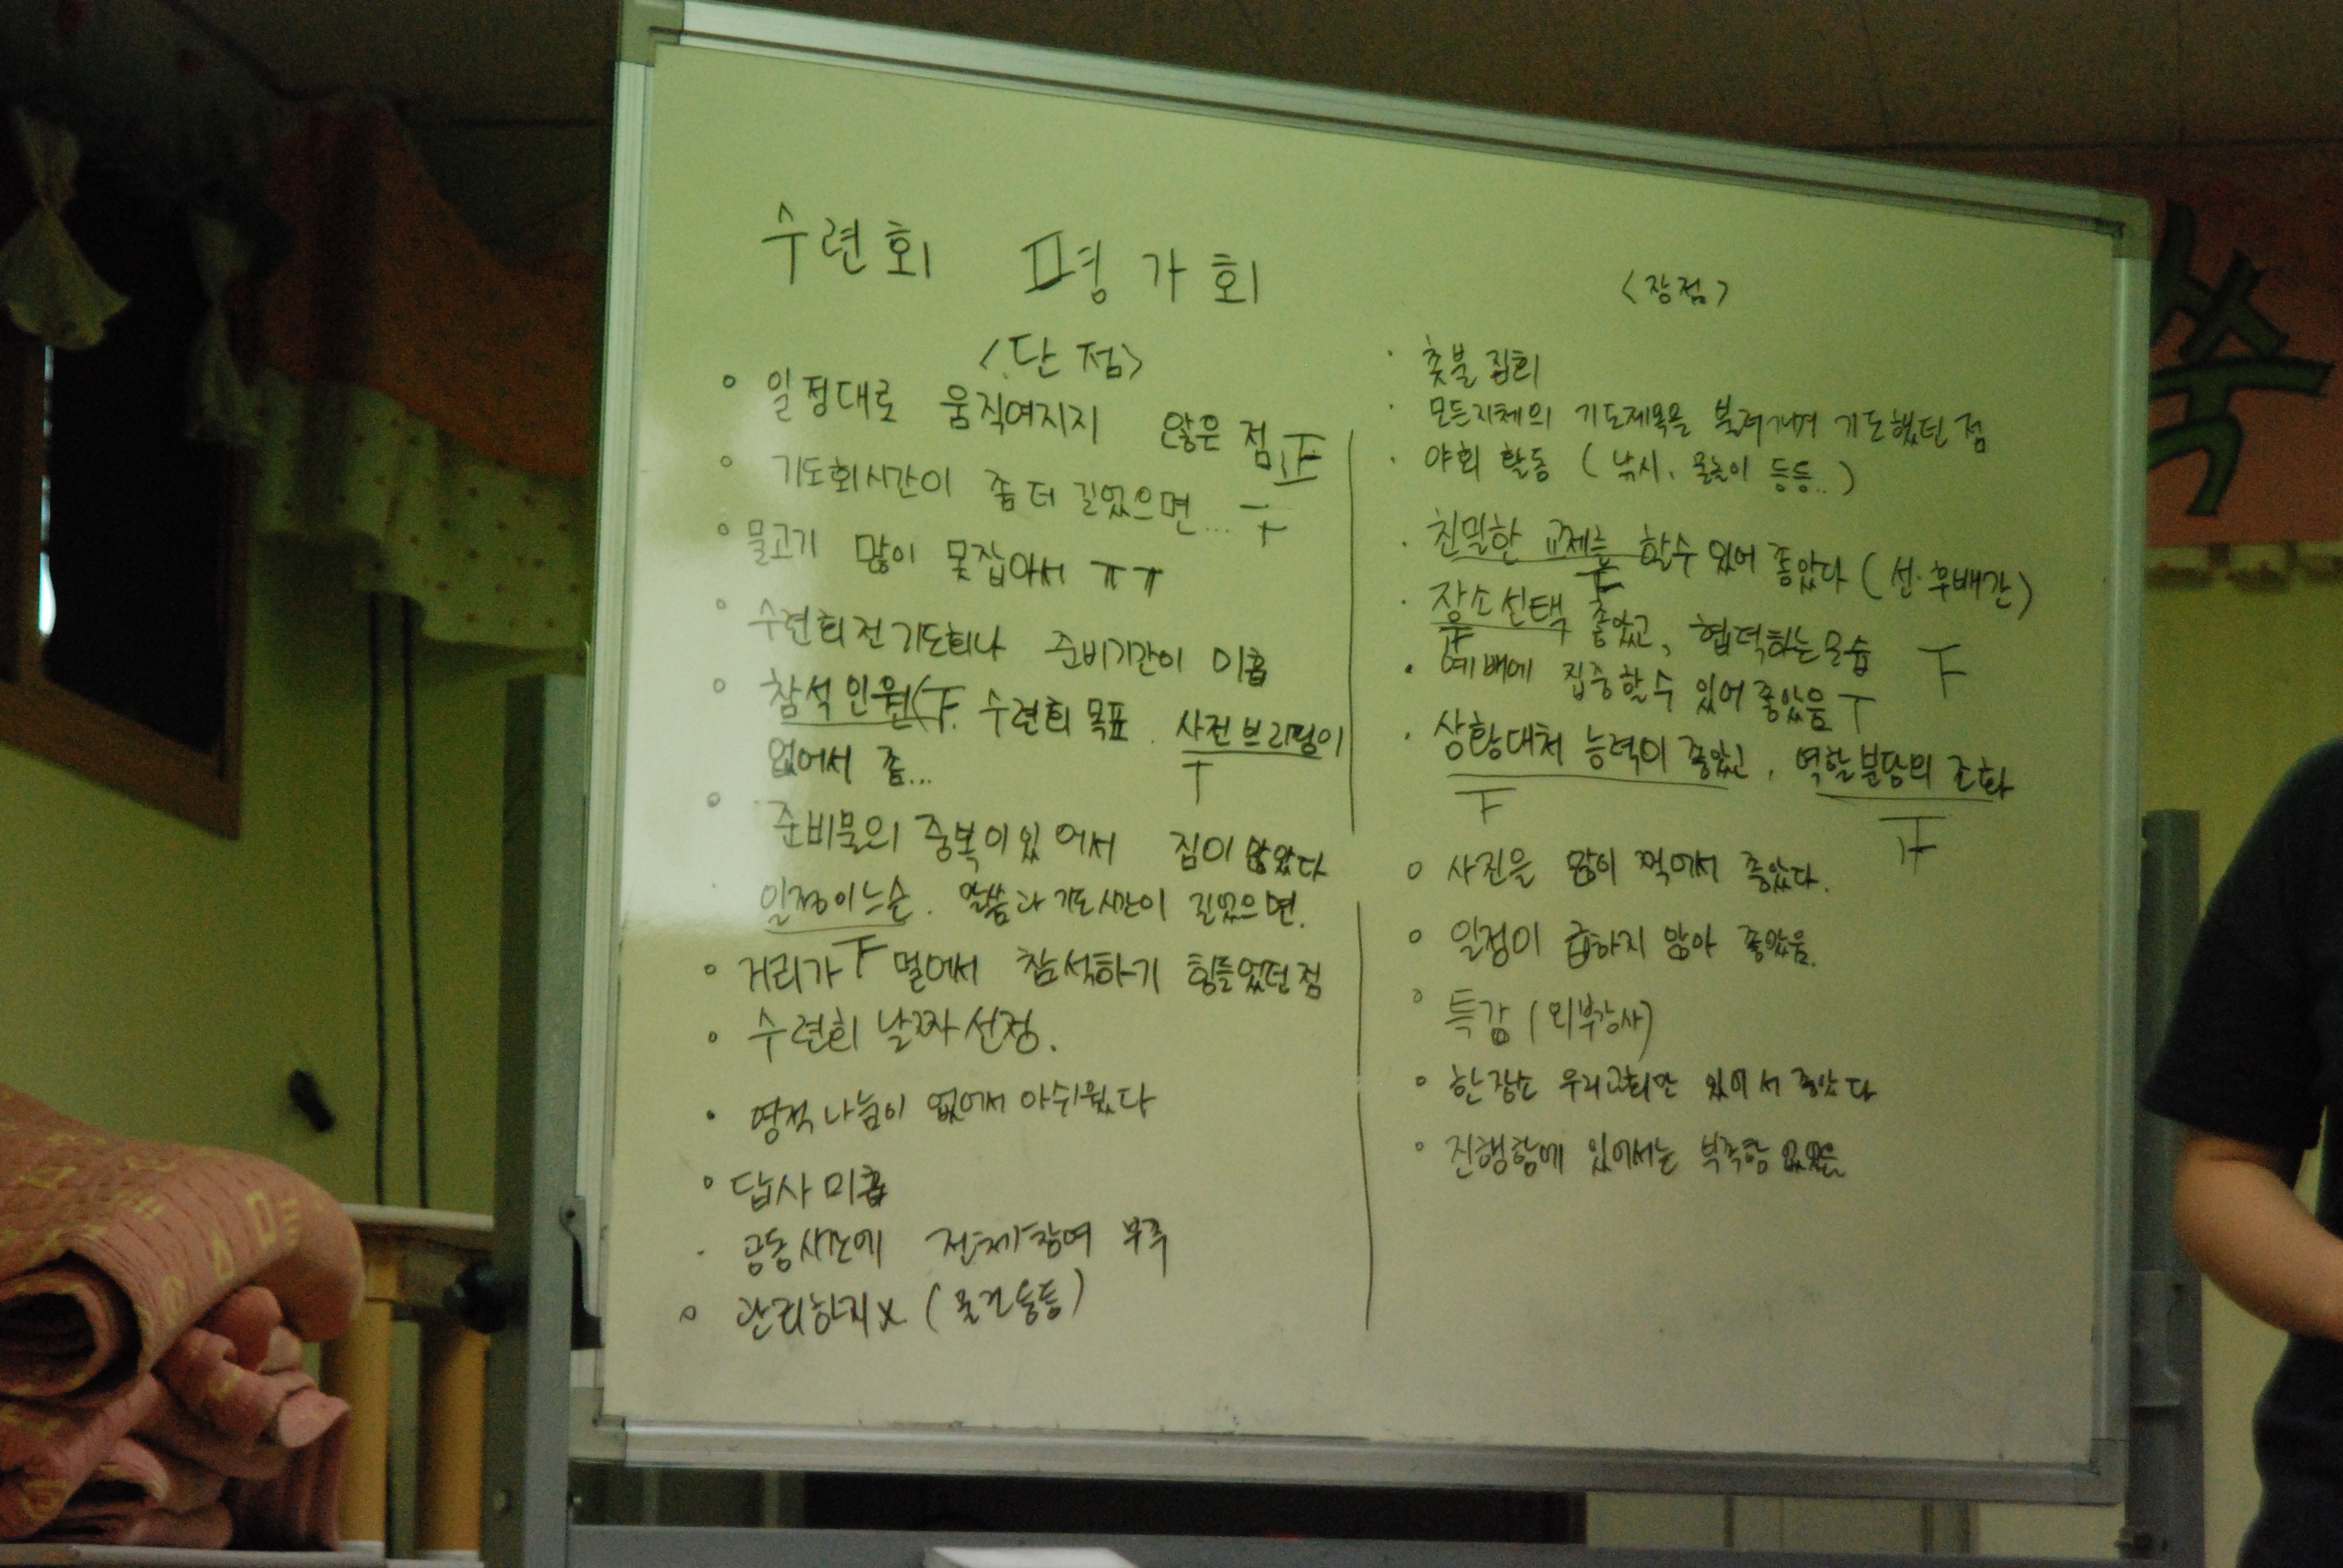 수련회 평가회
<단점>
일정대로 움직여지지 않은 점 正
기도회시간이 좀 더 길었으면...
물고기 많이 못잡아서 ㅠㅠ
수련회전 기도회나 준비기간이 미흡
참석인원( 수련회 목표. 사전브리핑이
없어서 좀...
준비물의 중복이 있어서 짐이 많았다
일정이느슨. 말씀과 기도시간이 길었으면.
거리가 멀어서 참석하기 힘들었던 점
수련회 날짜 선정.
영적나눔이 없어서 아쉬웠다
답사 미흡
공동시간에 전체참여 부족
관리하지X (물건들등)
<장점>
촛불집회
모든지체의 기도제목을 불러가며 기도했던 점
야회 활동 (낚시, 물놀이 등등..)
친밀한 교제를 할수 있어 좋았다 (선·후배간)
장소선택 좋았고, 협력하는모습
예배에 집중할수 있어 좋았음
상황대처 능력이 좋았고, 역할분담의 조화
사진을 많이 찍어서 좋았다.
일정이 급하지 않아 좋았음.
특강 (외부강사)
한장소 우리교회만 있어서 좋았다
진행함에 있어서는 부족함 없었음
쑥